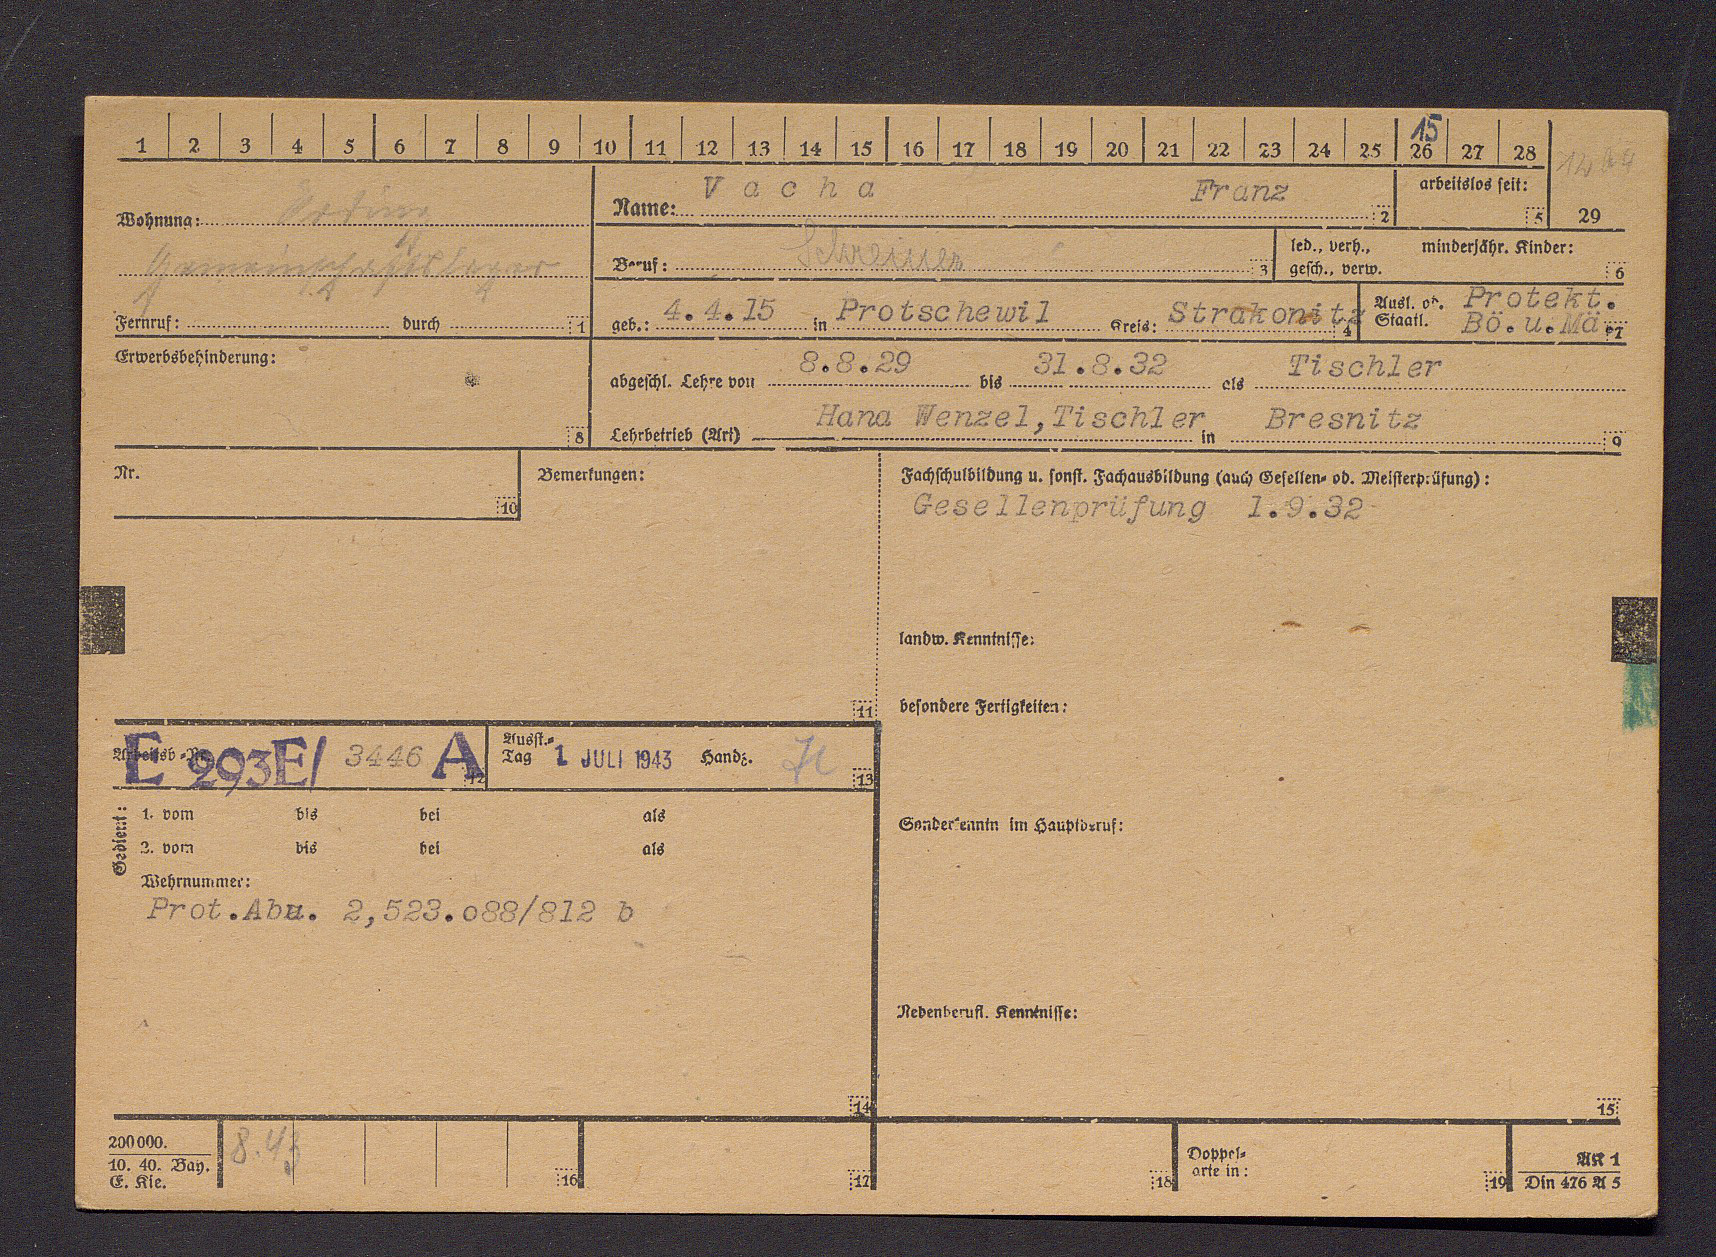 1 2 3 4 5 6 7 8 9 10 11 12 13 14 15 16 17 18 19 20 21 22 23 24 25 26 27 28
15
Wohnung:
Gemeinschaftslager
Fernruf: durch 1
Name: Vacha Franz 2
arbeitslos seit: 5
29
Beruf: Schreiner 3
led., verh., minderjähr. Kinder:
gesch., verw. 6
geb.: 4.4.15 in Protschewil Kreis: Strakonitz 4
Ausl. od. Protekt.
Staatl. Bö.u.Mä. 7
Erwerbsbehinderung:
8
abgeschl. Lehre von 8.8.29 bis 31.8.32 als Tischler
Lehrbetrieb (Art) Hana Wenzel,Tischler in Bresnitz 9
Nr.
10
Bemerkungen:
11
Fachschulbildung u. sonst. Fachausbildung (auch Gesellen- od. Meisterprüfung):
Gesellenprüfung 1.9.32
landw. Kenntnisse:
besondere Fertigkeiten:
Sonderkenntn im Hauptberuf:
Nebenberufl. Kenntnisse:
15
Arbeitsb.-Nr. E 293E/ 3446 A 12
Ausst.-
Tag 1 JULI 1943 Handz. 13
Gedient:
1. vom bis bei als
2. vom bis bei als
Wehrnummer:
Prot.Abu. 2,523.088/812 b
14
200000.
10. 40. Bay.
E. Kle.
8.43
16 17 18
Doppel-
arte in: 19
AK 1
Din 476 A 5